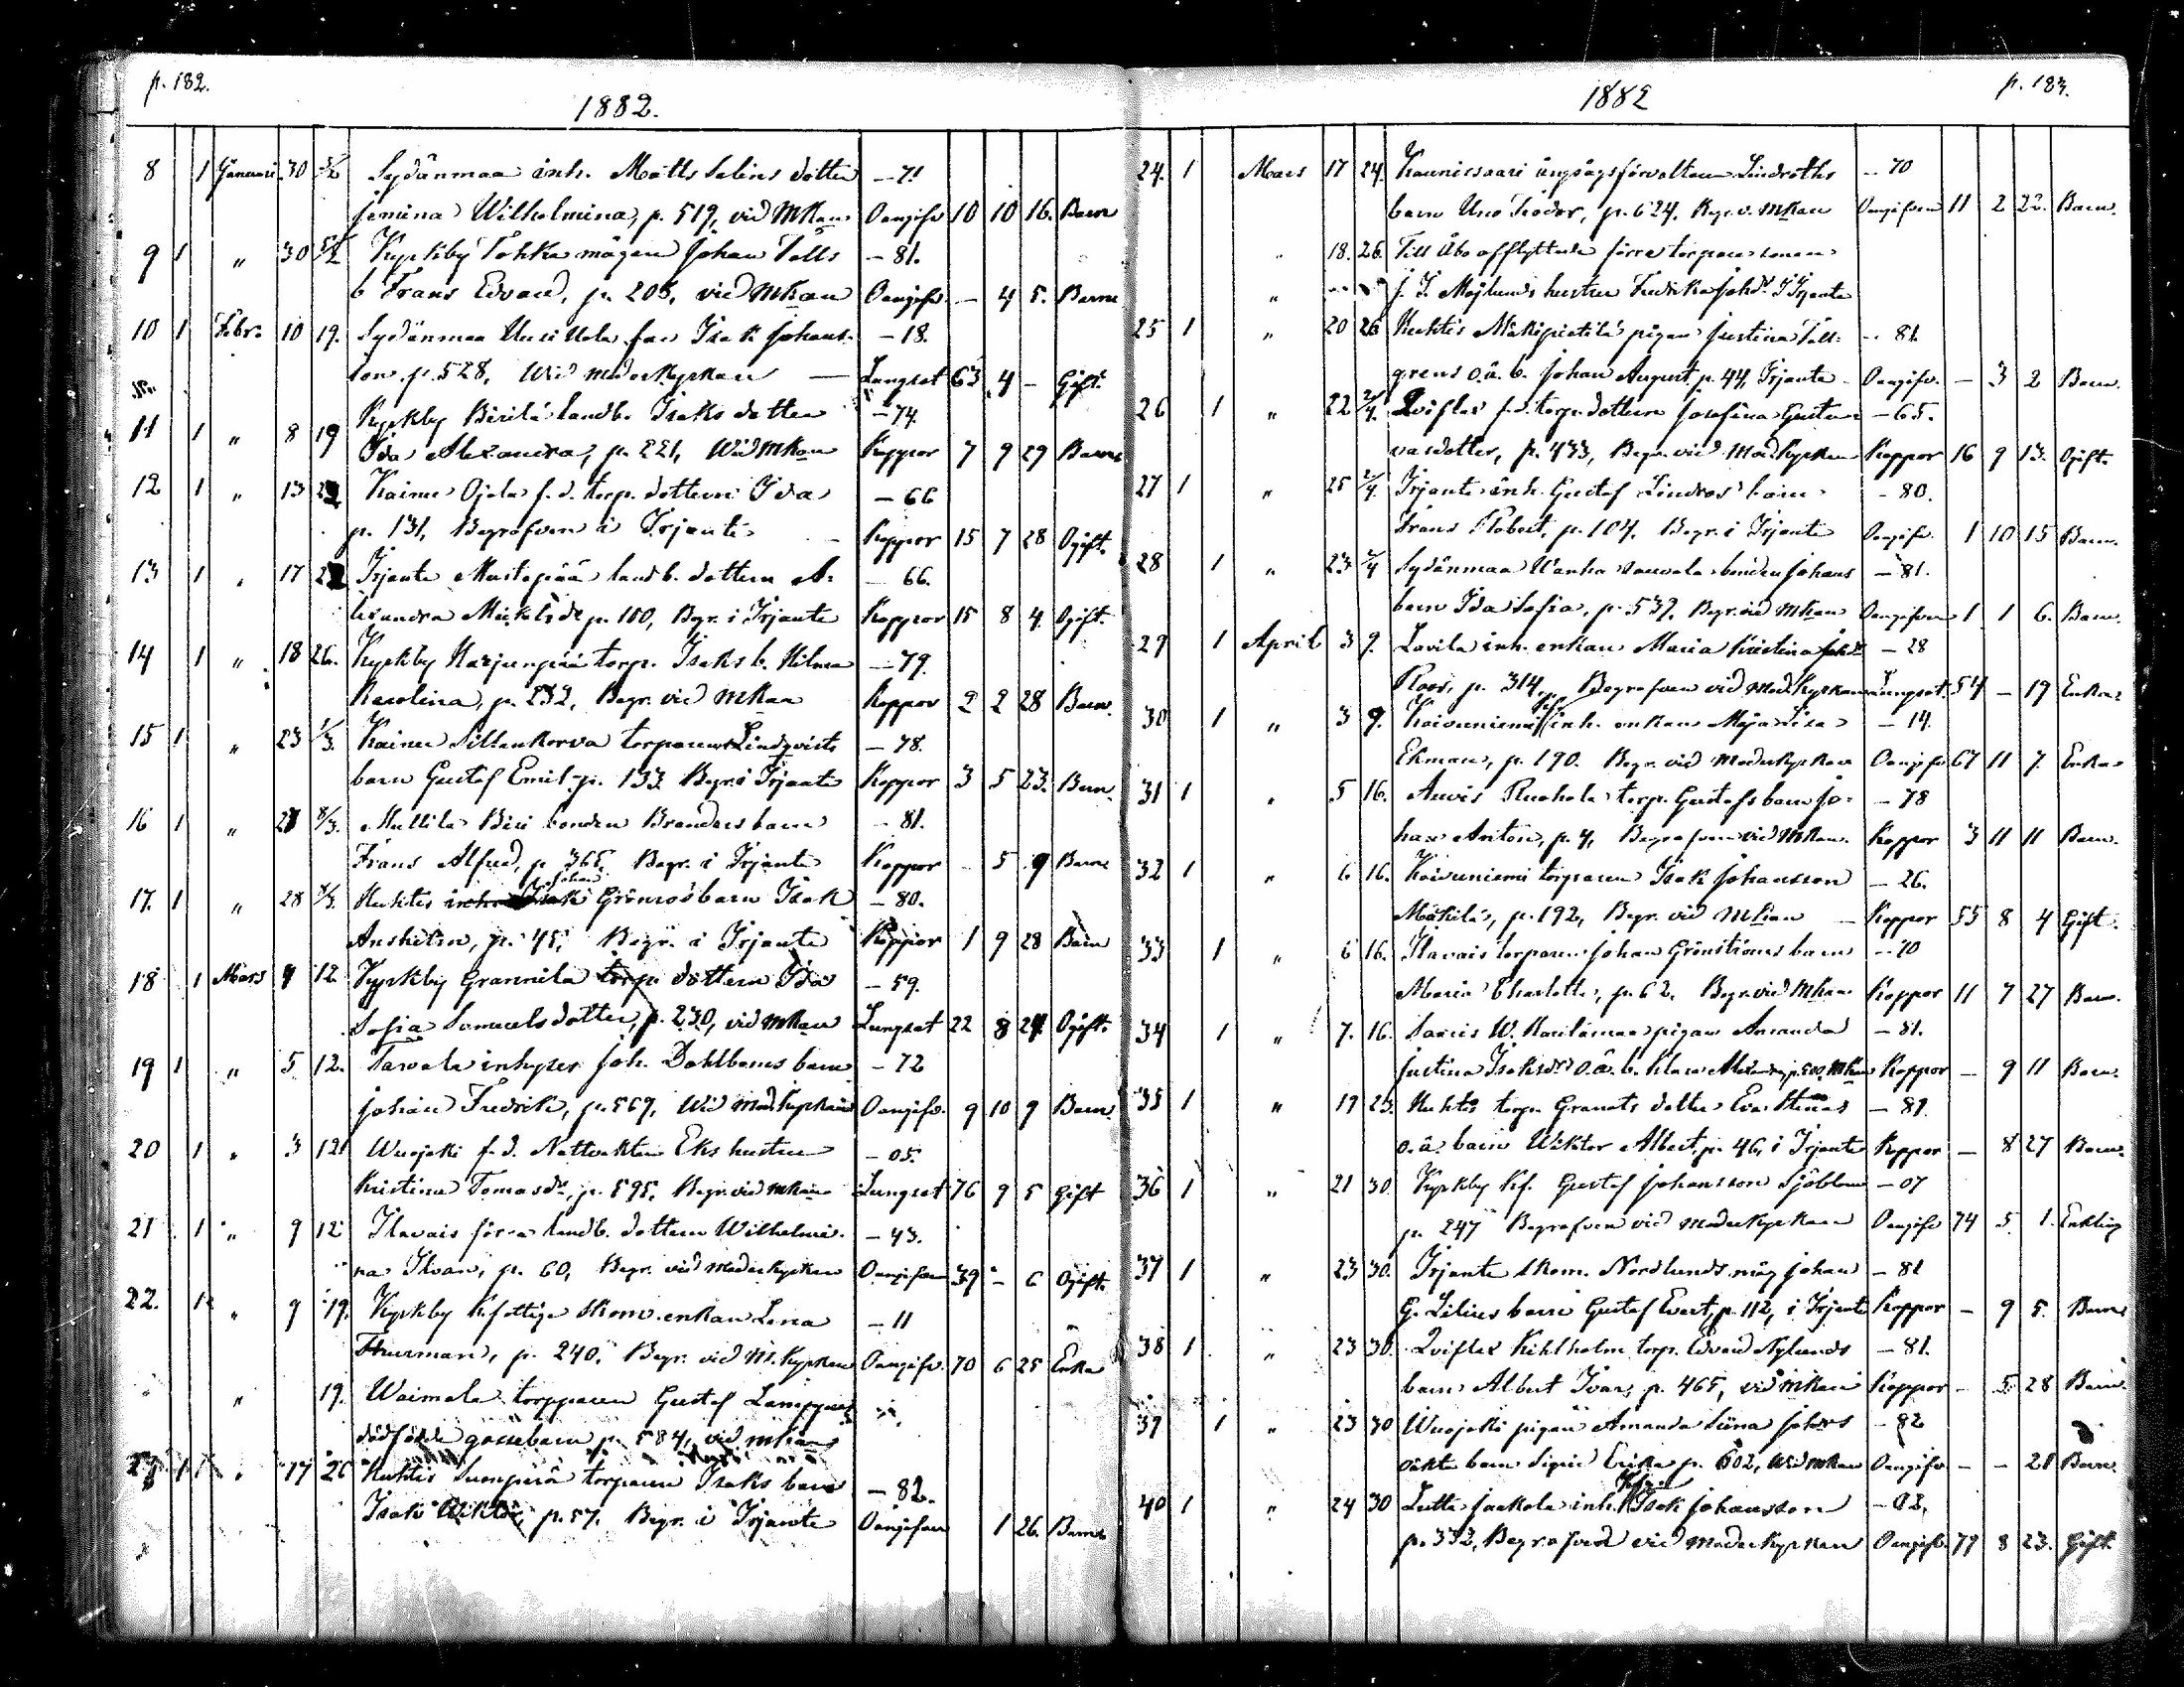 p. 182.
1882.
8 1 Januari 30 5/2 Sydänmaa inh. Matts Salins dotter – 71
Jemina Wilhelmina, p. 519, vid MKan Oangifv. 10 10 16. Barn
9 1 " 30 5/2 Kyrkby Tokka mågen Johan Tolls – 81.
b Frans Edvard, p. 205, vid MKan Oangifv. – 4 5. Barn
10 1 Febr. 10 19. Sydänmaa Uusi Uola far Isak Johans- – 18.
son p. 528, Wid moderkyrkan – Lungsot 63 4 – Gift.
11 1 " 8 19 Kyrkby Birilä landb. Isaks dotter – 74.
Ida Alexandra, p. 221, Wid MKan Koppor 7 9 29 Barn
12 1 " 13 Kainu Ojala f. d. torp. dottern Ida – 66
p. 131, Begrafven i Irjante – Koppor 15 7 28 Ogift.
13 1 " 17 Irjante Mustapää landb. dottern A- – 66.
lexandra Mickelsdr p. 100, Begr. i Irjante Koppor 15 8 4. Ogift.
14 1 " 18 26. Kyrkby Harjunpää torp. Isaks b. Hilma – 79.
Karolina, p. 232, Begr. vid MKan Koppor 2 2 28 Barn.
15 1 " 23 1/3. Kainu Sillankorva torparen Lindqvists – 78.
barn Gustaf Emil p. 133. Begr. i Irjante Koppor 3 5 23. Barn.
16 1 " 8/3. Mullila Biri bonden Branders barn – 81.
Frans Alfred, p. 365. Begr. i Irjante Koppor – 5 9 Barn
17. 1 " 28 Huhtis Johan Grönroos barn Isak – 80.
Anshelm, p. 45, Begr. i Irjante Koppor 1 9 28 Barn
18 1 Mars 12 Kyrkby Grannila torp. dottern Ida – 59.
Sofia Samuelsdotter, p. 230, vid MKan Lungsot 22 8 24. Ogift.
19 1 " 5 12. Tarvala inhyses Joh. Dahlboms barn – 72
Johan Fredrik, p. 569, Wid mod.kyrkan Oangifv. 9 10 9 Barn
20 1 " 3 12 Wuojoki f. d. Nattvakten Eks hustru – 05.
Kristina Tomasdr, p. 595, Begr. vid MKan Lungsot 76 9 5 Gift
21 1 " 9 12 Ilavais förra landb. dottern Wilhelmi- – 43.
na Ilvan, p. 60, Begr. vid moderkyrkan Oangifven 39 – 6 Ogift.
22. 1 " 9 19. Kyrkby Kfattige skom. enkan Lena – 11
Thurman, p. 240. Begr. vid M.kyrkan Oangifv. 70 6 25 Enka
" 19. Waimala torpparen Gustaf
dödfödde gossebarn p. 584, vid mkan
23 1 " 17 26 Huhtis Suonperä torparen Isaks barn – 82.
Isak Wiktor, p. 57. Begr. i Irjante Oangifven 1 26. Barn
p. 183.
1882
24. 1 Mars 17 24. Kaunissaari ångsågsförvaltaren Lindroths – 70
barn Uno Teodor, p. 624. Begr. v. MKan Oangifven 11 2 22. Barn.
" 18. 26. Till Åbo afflyttade förre torparesonen
" J. I. Majlunds hustru Fredrika Johdr. I Irjante
25 1 " 20 26 Huhtis Mäkipietilä pigan Justina Tall- – 81.
grens o.ä. b. Johan August p. 44, Irjante – Oangifv. – 3 2 Barn.
26 1 " 22 2/4. Qvifler f. d. torp. dottern Josefina Gusta- – 65.
vasdotter, p. 433, Begr. vid Modkyrkan Koppor 16 9 13. Ogift.
27 1 " 25 2/4. Irjante inh. Gustaf Lindroos' barn – 80.
Frans Robert, p. 104, Begr. i Irjante Oangifv. 1 10 15 Barn.
28 1 " 23 2/4 Sydänmaa Wanha bonden Johans – 81.
barn Ida Sofia, p. 539. Begr. vid MKan Oangifven 1 1 6. Barn.
29 1 April 3 9. Lavila inh. enkan Maria Kristina Johdr – 28
Roos, p. 314, Begrafven vid Mod.kyrkan Lungsot. 54 – 19 Enka.
30 1 " 3 9. Koivuniemi inh. enkan Maja Lisa – 14.
Ekman, p. 190. Begr. vid Moderkyrkan Oangifv 67 11 7. Enka
31 1 " 5 16. Auvis Ruohola torp. Gustafs barn Jo- – 78
han Anton, p. 4, Begrafven vid MKan. Koppor 3 11 11 Barn.
32 1 " 6 16. Koivuniemi torparen Isak Johansson – 26.
Mäkilä, p. 192, Begr. vid MKan – Koppor 55 8 4 Gift.
33 1 " 6 16. Ilavais torparen Johan Grönströms barn – 70
Maria Charlotte, p. 62. Begr. vid MKan Koppor 11 7 27 Barn.
34 1 " 7. 16. Saaris W. pigan Amanda – 81.
Justina Isaksdr o.ä. b. Klara p. 500, MKan Koppor – 9 11 Barn.
35 1 " 19 23. Huhtis torp. Granats dotter Eva Stinas – 81.
o.ä. barn Wiktor Albert, p. 46, i Irjante Koppor – 8 27 Barn.
36 1 " 21 30. Kyrkby Kf. Gustaf Johansson Sjöblom – 07
p. 247 Begrafven vid moderkyrkan Oangifv 74 5 1. Enkling
37 1 " 23 30. Irjante skom. Nordlunds måg Johan – 81
G. Lilius barn Gustaf Evert, p. 112, i Irjante Koppor – 9 5. Barn
38 1 " 23 30. Qviflax Kihlholm torp. Edvard Nylunds – 81.
barn Albert Ivar, p. 465, vid MKan Koppor – 5 28 Barn.
39 1 " 23 30 Wuojoki pigan Amanda Siina Johdrs – 82
oäkta barn Sigrid Erika p. 602, Wid MKan Oangifv – – 21 Barn.
40 1 " 24 30 Lutta Jaakola inh. Isak Johansson – 02.
p. 332, Begrafven vid moderkyrkan Oangifv. 79 8 23. Gift.